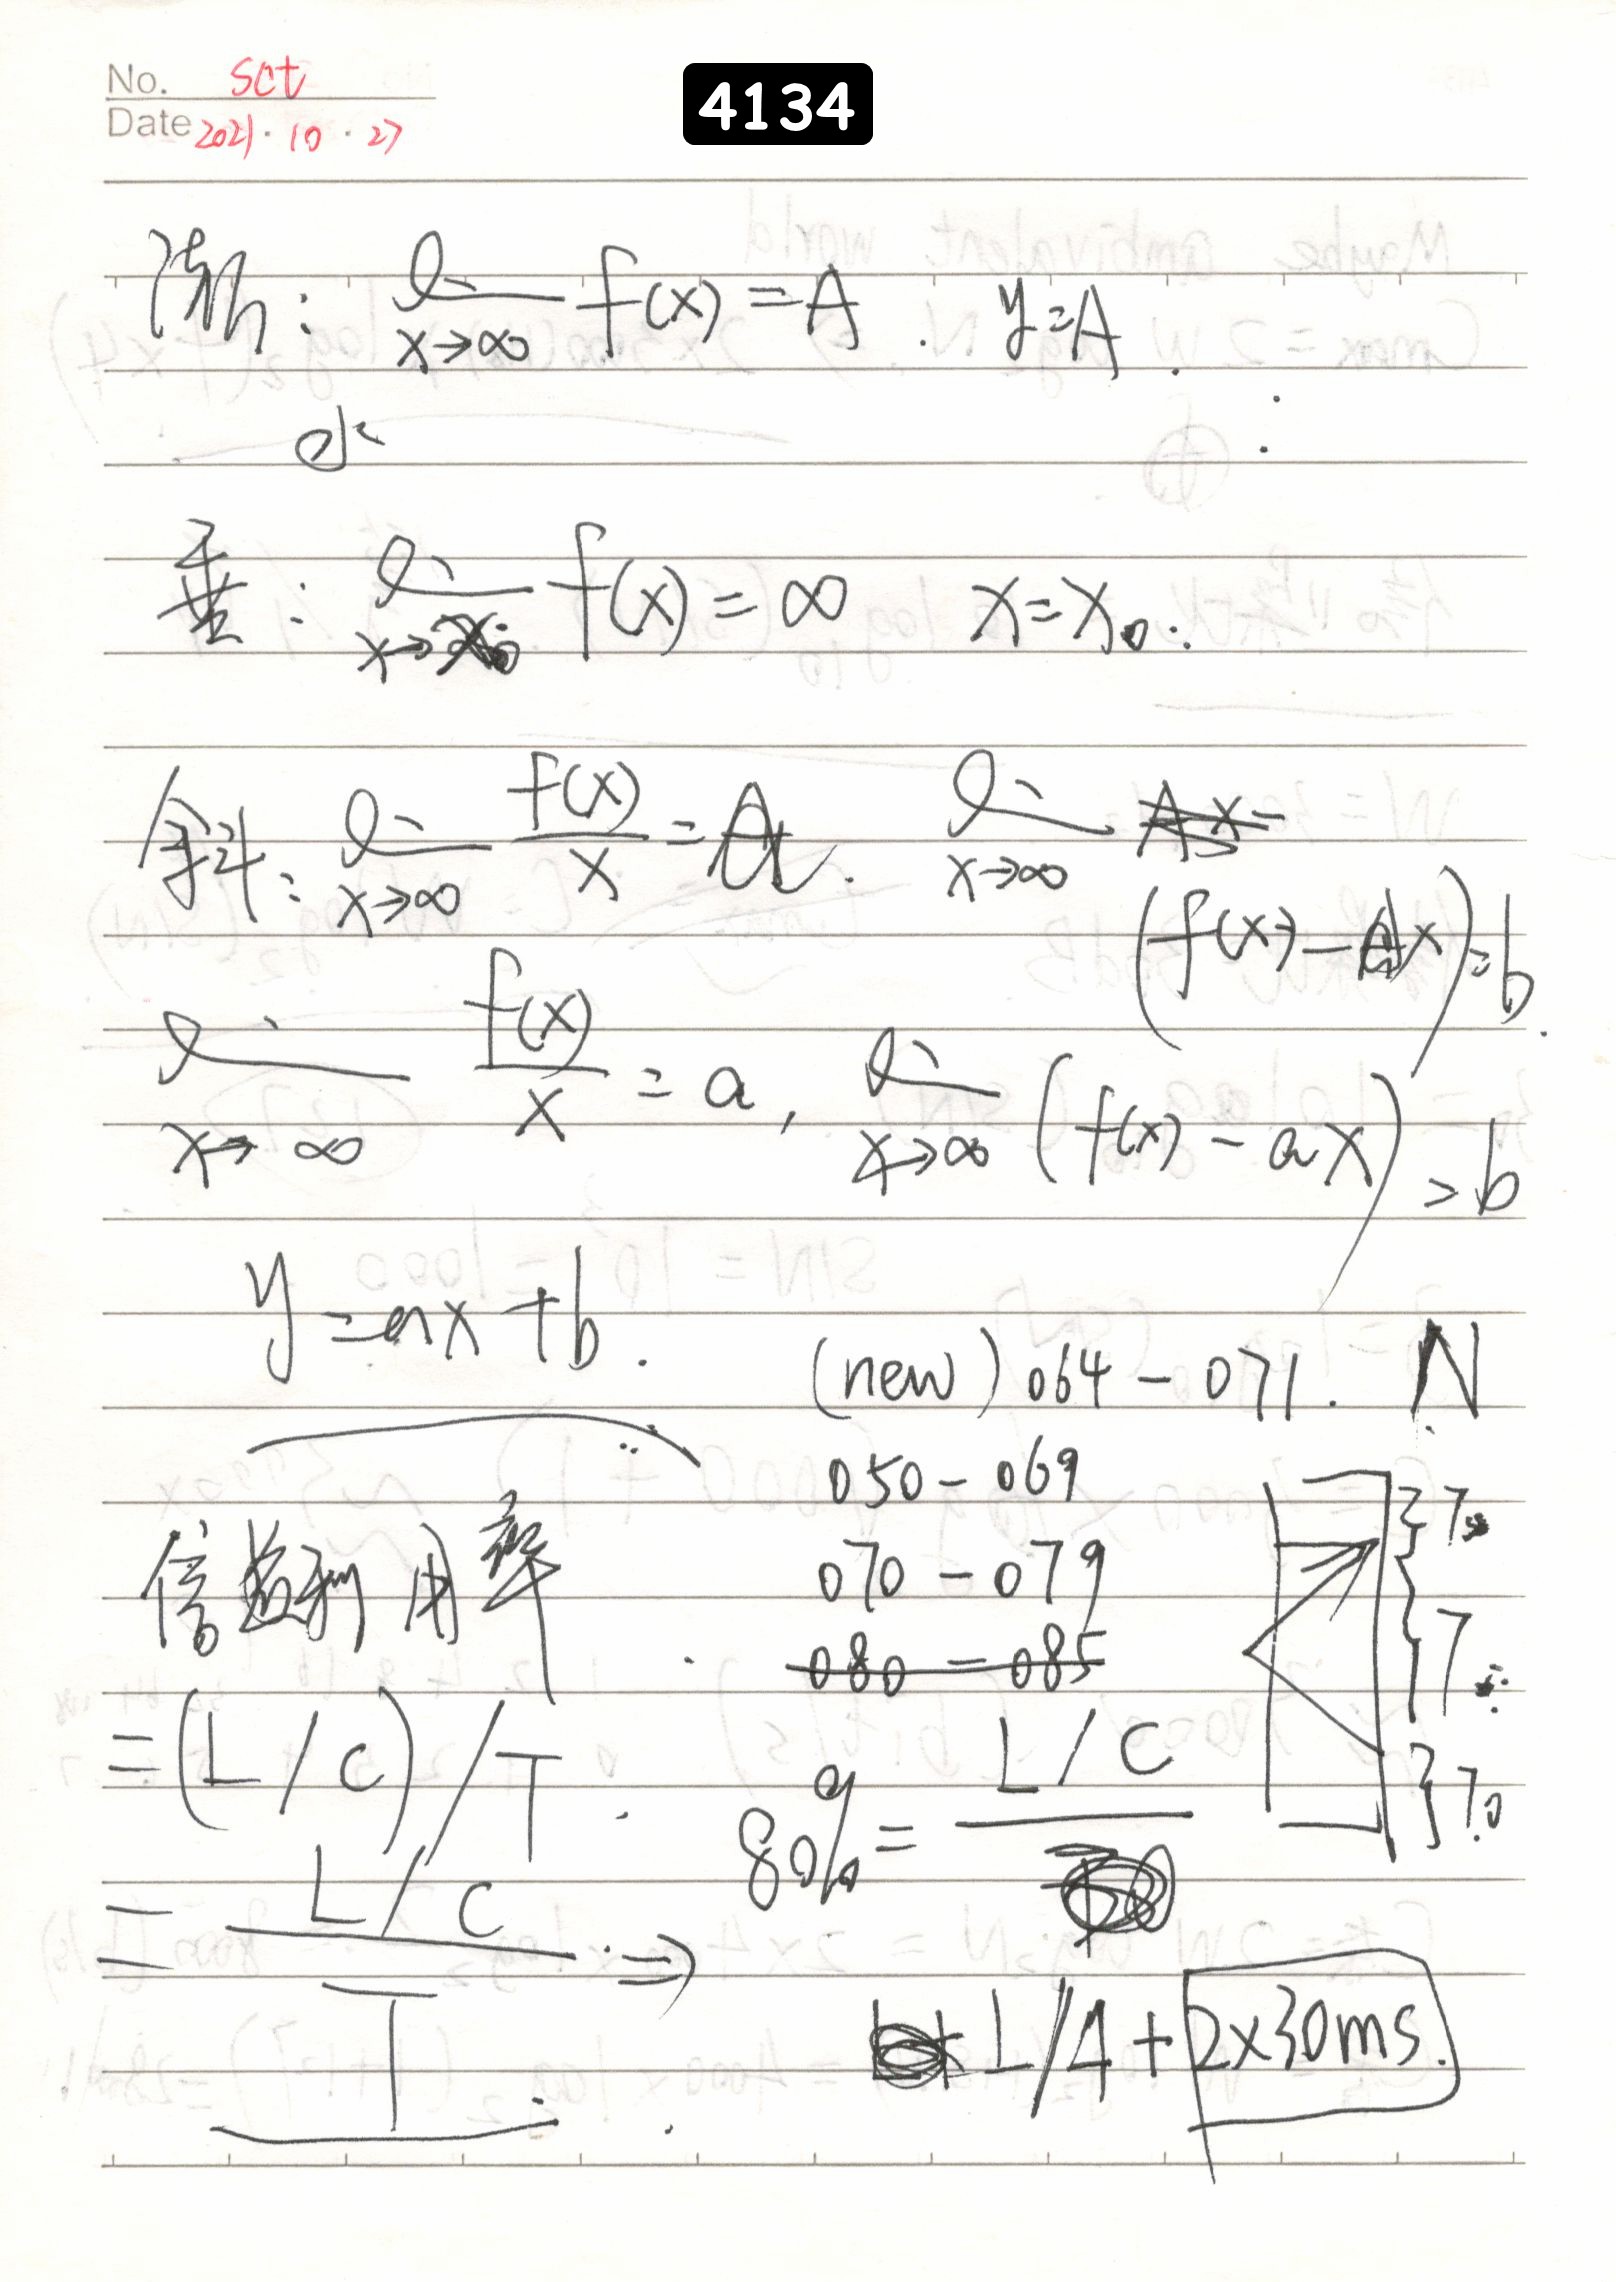 No. sct
4134
Date 2021.10.27
渐: lim x→∞ f(x) = A. y=A.
水
垂: lim x→x₀ f(x) = ∞ x=x₀.
斜: lim x→∞ f(x)/x = a. lim x→∞
(f(x)-ax)=b.
lim x→∞ f(x)/x = a, lim x→∞ (f(x)-ax) = b
y=ax+b.
(new) 064-071. N
050-069
070-079
080-085
信道利用率
=(L/C)/T.
80% = L/C
= L/C / T ⇒
L/4+2x30ms.